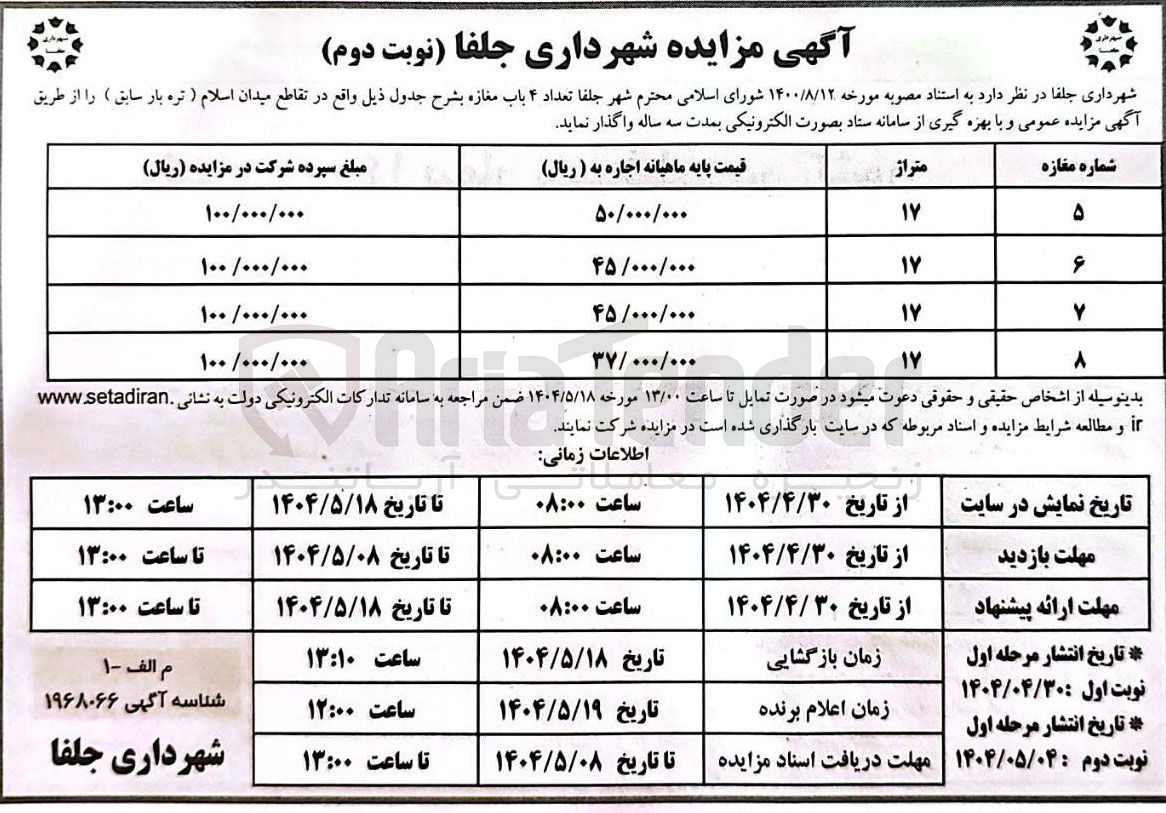 شهرداری جلفا
آگهی مزایده شهرداری جلفا (نوبت دوم)
شهرداری جلفا
شهرداری جلفا در نظر دارد به استناد مصوبه مورخه ۱۴۰۰/۸/۱۲ شورای اسلامی محترم شهر جلفا تعداد ۴ باب مغازه بشرح جدول ذیل واقع در تقاطع میدان اسلام ( تره بار سابق ) را از طریق
آگهی مزایده عمومی و با بهره گیری از سامانه ستاد بصورت الکترونیکی بمدت سه ساله واگذار نماید.
شماره مغازه متراژ قیمت پایه ماهیانه اجاره به ( ریال) مبلغ سپرده شرکت در مزایده (ریال)
۵ ۱۷ ۵۰/۰۰۰/۰۰۰ ۱۰۰/۰۰۰/۰۰۰
۶ ۱۷ ۴۵/۰۰۰/۰۰۰ ۱۰۰/۰۰۰/۰۰۰
۷ ۱۷ ۴۵/۰۰۰/۰۰۰ ۱۰۰/۰۰۰/۰۰۰
۸ ۱۷ ۳۷/۰۰۰/۰۰۰ ۱۰۰/۰۰۰/۰۰۰
AriaTender
بدینوسیله از اشخاص حقیقی و حقوقی دعوت میشود در صورت تمایل تا ساعت ۱۳/۰۰ مورخه ۱۴۰۴/۵/۱۸ ضمن مراجعه به سامانه تدارکات الکترونیکی دولت به نشانی www.setadiran.
ir و مطالعه شرایط مزایده و اسناد مربوطه که در سایت بارگذاری شده است در مزایده شرکت نمایند.
اطلاعات زمانی:
زنجیره معاملاتی آریاتندر
تاریخ نمایش در سایت از تاریخ ۱۴۰۴/۴/۳۰ ساعت ۰۸:۰۰ تا تاریخ ۱۴۰۴/۵/۱۸ ساعت ۱۳:۰۰
مهلت بازدید از تاریخ ۱۴۰۴/۴/۳۰ ساعت ۰۸:۰۰ تا تاریخ ۱۴۰۴/۵/۰۸ تا ساعت ۱۳:۰۰
مهلت ارائه پیشنهاد از تاریخ ۱۴۰۴/۴/۳۰ ساعت ۰۸:۰۰ تا تاریخ ۱۴۰۴/۵/۱۸ تا ساعت ۱۳:۰۰
* تاریخ انتشار مرحله اول
نوبت اول :۱۴۰۴/۰۴/۳۰
* تاریخ انتشار مرحله اول
نوبت دوم : ۱۴۰۴/۰۵/۰۴
زمان بازگشایی تاریخ ۱۴۰۴/۵/۱۸ ساعت ۱۳:۱۰
زمان اعلام برنده تاریخ ۱۴۰۴/۵/۱۹ ساعت ۱۲:۰۰
مهلت دریافت اسناد مزایده تا تاریخ ۱۴۰۴/۵/۰۸ تا ساعت ۱۳:۰۰
م الف -۱
شناسه آگهی ۱۹۶۸۰۶۶
شهرداری جلفا